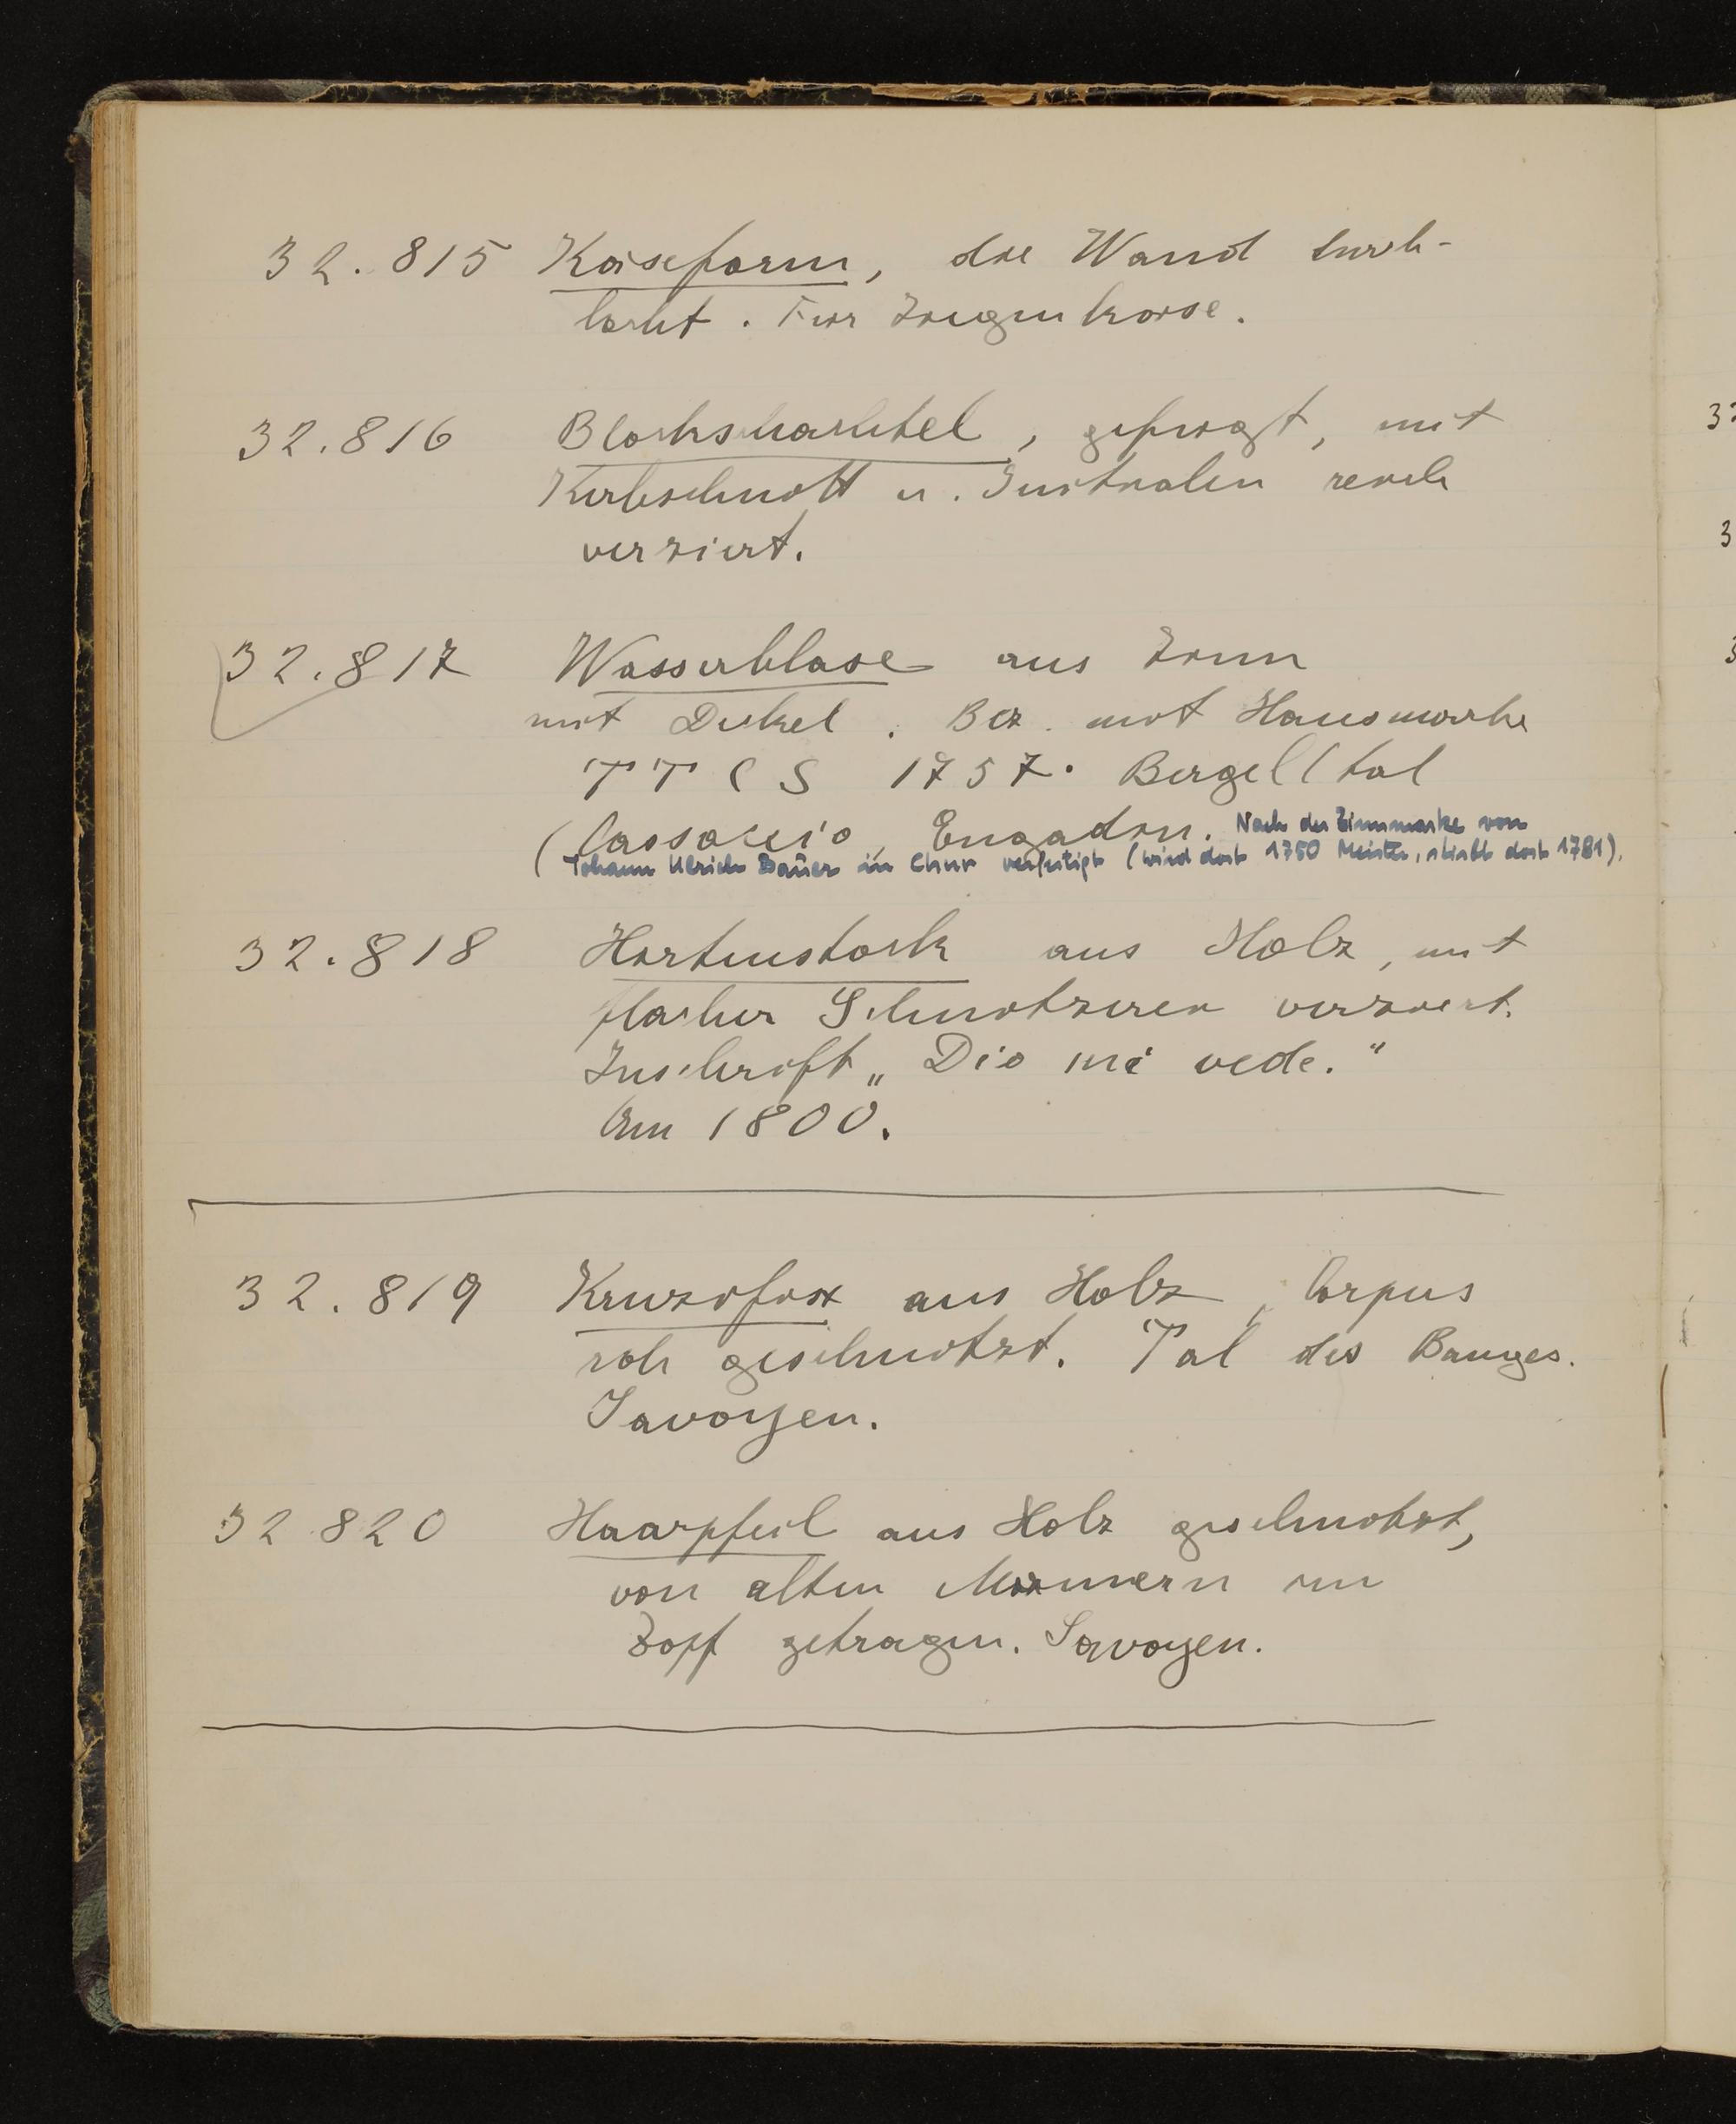 32.815 Käseform, die Wand durch-
locht. Für Ziegenkäse.
32.816 Blockschachtel, gefügt, mit
Kerbschnitt u. Initialen reich
verziert.
32.817 Wasserblase aus Zinn
mit Deckel. Bez. mit Hausmarke
T T C S 1757. Bergell tal
(Cassaccio, Engadin. Nach der Zinnmarke von
Johann Ulrich Bauer in Chur verfertigt (wird dort 1750 Meister, stirbt dort 1781).
32.818 Hirtenstock aus Holz, mit
flacher Schnitzerei verziert.
Inschrift „Dio mi vede."
Um 1800.
32.819 Kruzifix aus Holz, Corpus
roh geschnitzt. Tal des Bauges.
Savoyen.
32 820 Haarpfeil aus Holz geschnitzt,
von alten Männern im
Zopf getragen. Savoyen.
32
3
3